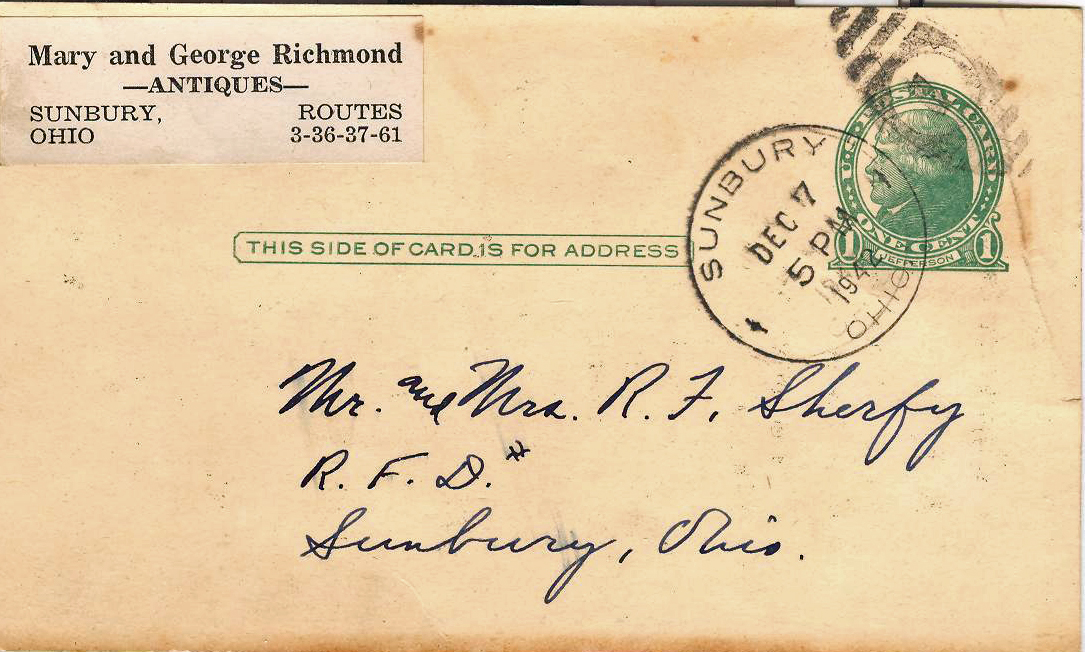 Mary and George Richmond
—ANTIQUES—
SUNBURY, ROUTES
OHIO 3-36-37-61
U.S. POSTAL CARD
ONE CENT
1 JEFFERSON 1
SUNBURY
DEC 7
5 PM
1942
OHIO
THIS SIDE OF CARD IS FOR ADDRESS
Mr. and Mrs. R. F. Sherfy
R. F. D. #
Sunbury, Ohio.